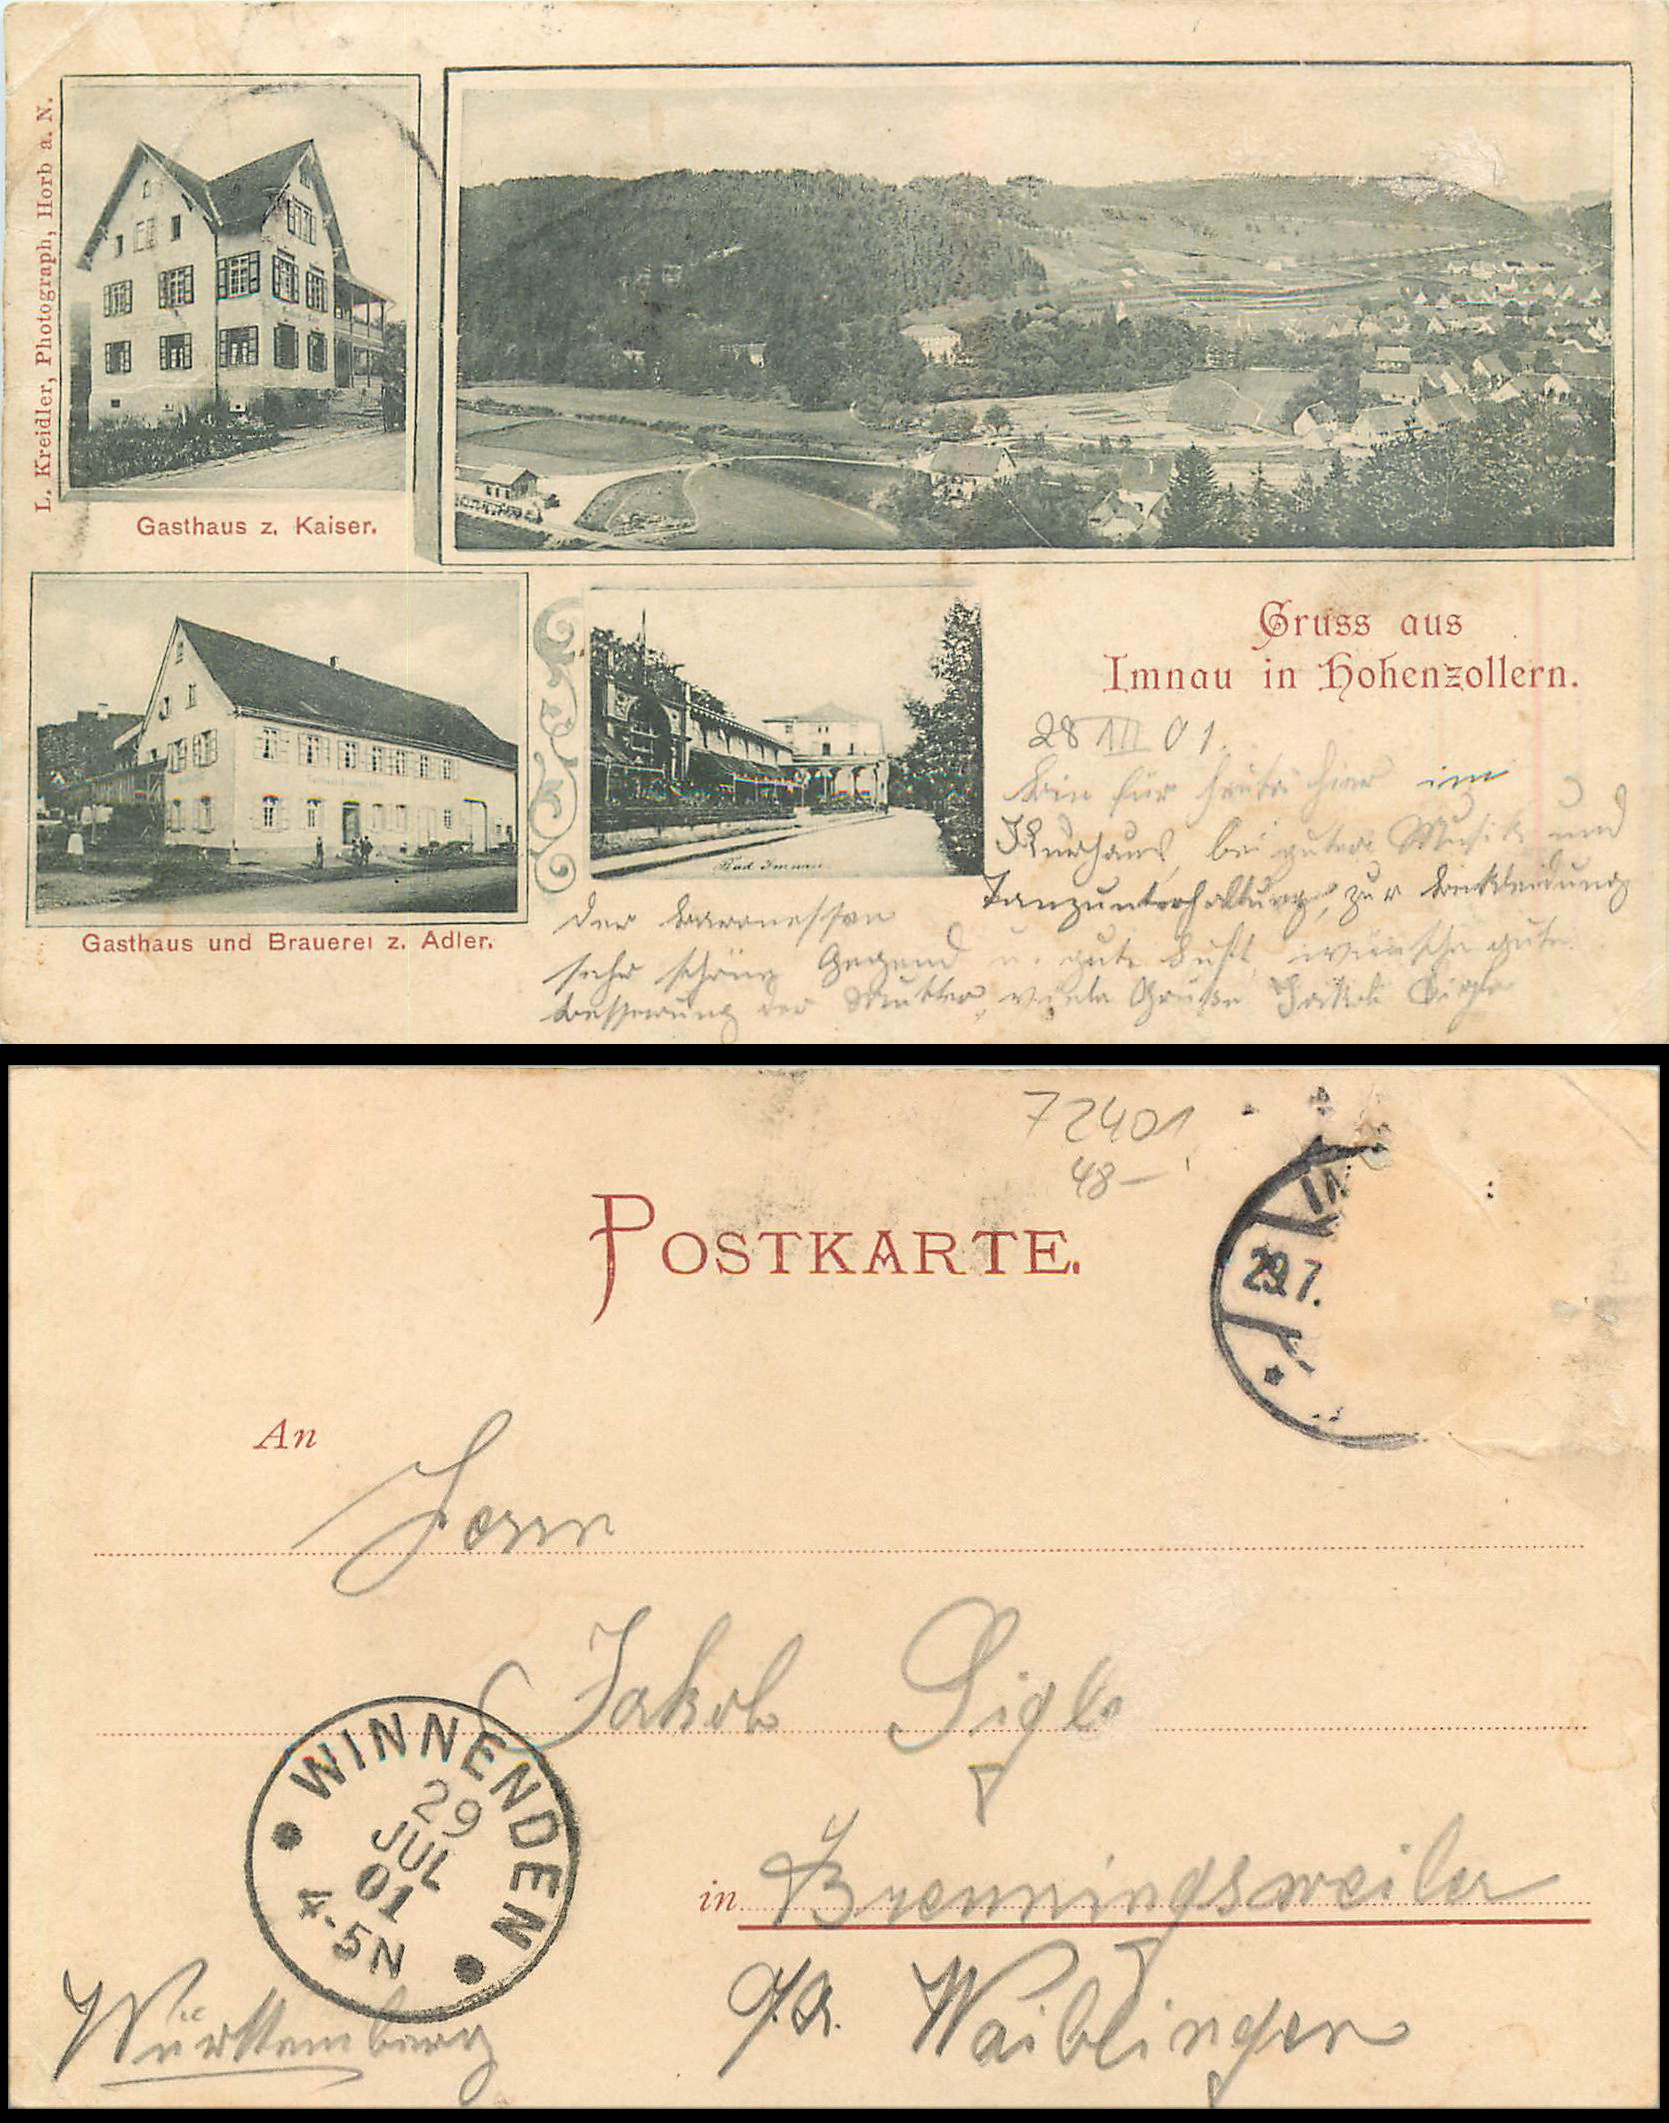 L. Kreidler, Photograph, Horb a. N.
Gasthaus z. Kaiser.
Gasthaus und Brauerei z. Adler.
Bad Imnau
Gruss aus
Imnau in Hohenzollern.
28 VII 01.
Bin für heute hier im
Kurhaus, bei guter Musik und
Tanzunterhaltung, zur
der Baronessen
sehr schöne Gegend u. gute Luft, wünsche gute
Besserung der Mutter, viele Grüße Jakob Sigle
72401
48–
POSTKARTE.
29.7.
An
Herrn
Jakob Sigle
WINNENDEN
29
JUL
01
4-5N
in Brenningsweiler
O/A. Waiblingen
Württemberg